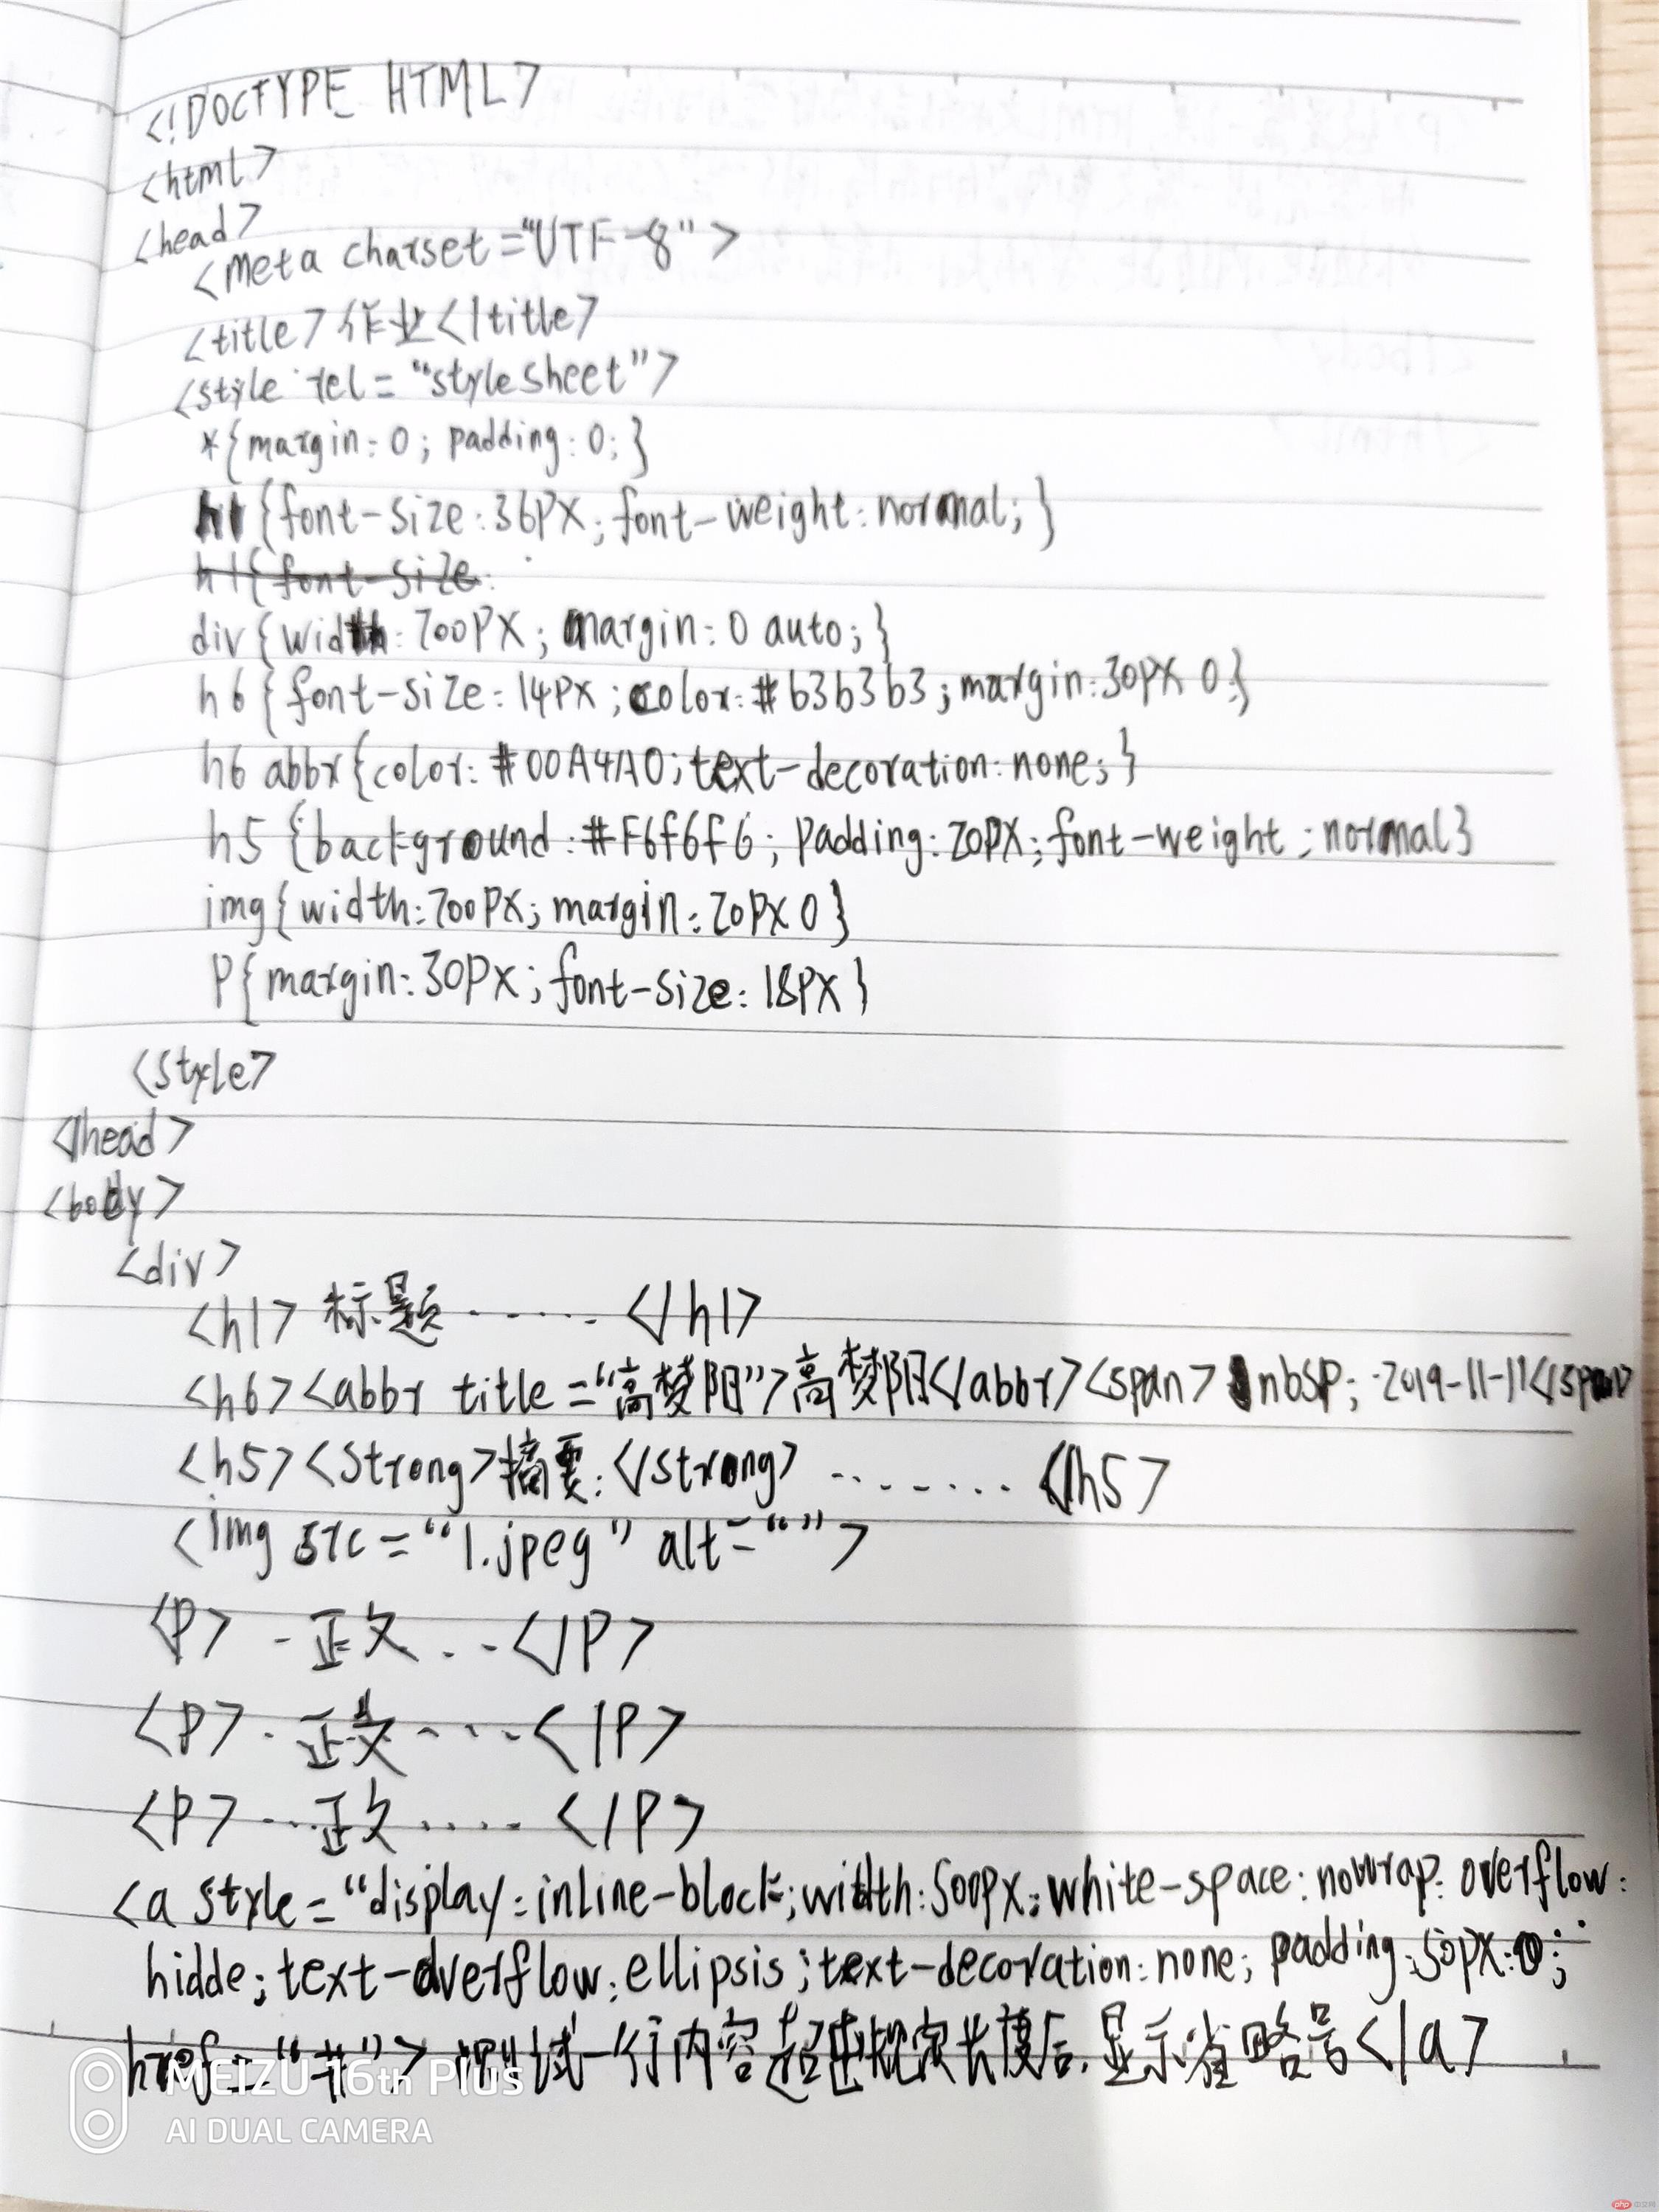 <!DOCTYPE HTML>
<html>
<head>
<meta charset="UTF-8">
<title>作业</title>
<style rel="stylesheet">
*{margin:0; padding:0;}
h1{font-size:36PX;font-weight:normal;}
h1{font-size:
div{width:700PX; margin:0 auto;}
h6{font-size:14PX;color:#b3b3b3;margin:30PX 0;}
h6 abbr{color:#00A4A0;text-decoration:none;}
h5{background:#F6f6f6;Padding:20PX;font-weight:normal}
img{width:700PX;margin:20PX 0}
P{margin:30PX;font-size:18PX}
<style>
</head>
<body>
<div>
<h1>标题......</h1>
<h6><abbr title="高梦阳">高梦阳</abbr><span> nbsp; 2019-11-11</span>
<h5><Strong>摘要:</strong>.......</h5>
<img src="1.jpeg" alt="">
<P>.正文..</P>
<P>.正文....</P>
<P>...正文.....</P>
<a style="display:inline-block;width:500px;white-space:nowrap;overflow:
hidde;text-overflow:ellipsis;text-decoration:none;padding:50px:0;
href="#">测试一行内容超出规定长度后,显示省略号</a>
MEIZU 16th Plus
AI DUAL CAMERA
php 中文网